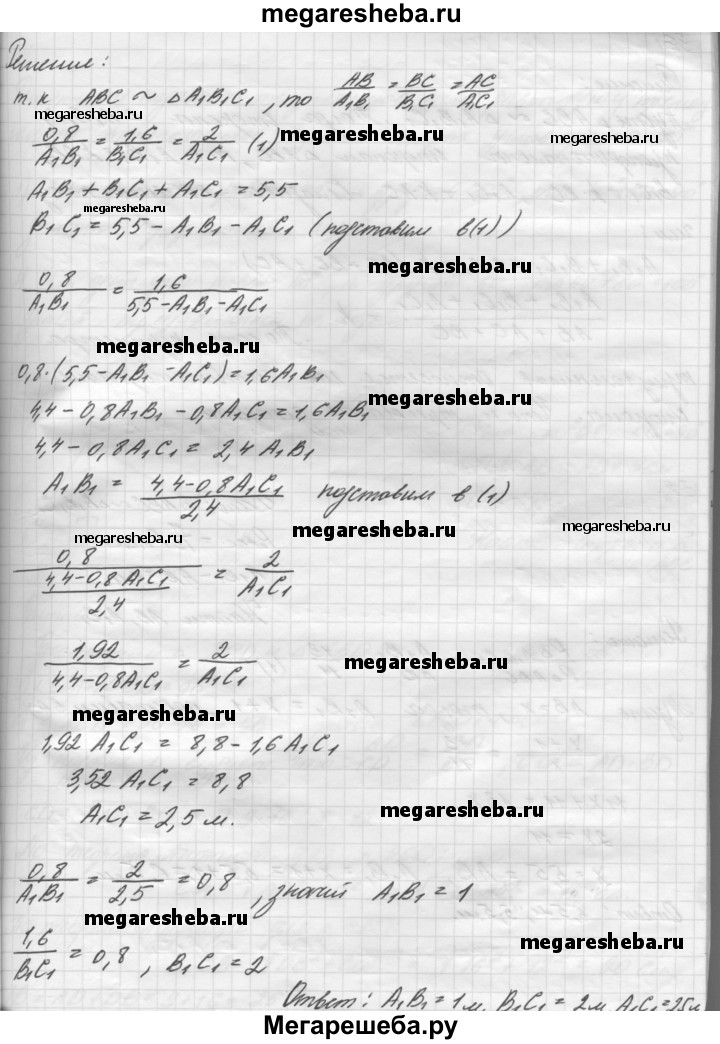 megaresheba.ru
Решение:
т.к ABC ~ △ A₁B₁C₁, то AB/A₁B₁ = BC/B₁C₁ = AC/A₁C₁
megaresheba.ru megaresheba.ru megaresheba.ru
0,8/A₁B₁ = 1,6/B₁C₁ = 2/A₁C₁ (1)
A₁B₁ + B₁C₁ + A₁C₁ = 5,5
megaresheba.ru
B₁C₁ = 5,5 - A₁B₁ - A₁C₁ (подставим в(1))
megaresheba.ru
0,8/A₁B₁ = 1,6/(5,5 - A₁B₁ - A₁C₁)
megaresheba.ru
0,8·(5,5 - A₁B₁ - A₁C₁) = 1,6A₁B₁
megaresheba.ru
4,4 - 0,8A₁B₁ - 0,8A₁C₁ = 1,6A₁B₁
4,4 - 0,8A₁C₁ = 2,4 A₁B₁
A₁B₁ = (4,4 - 0,8A₁C₁)/2,4 подставим в (1)
megaresheba.ru megaresheba.ru megaresheba.ru
0,8/((4,4 - 0,8 A₁C₁)/2,4) = 2/A₁C₁
1,92/(4,4 - 0,8A₁C₁) = 2/A₁C₁
megaresheba.ru
megaresheba.ru
1,92 A₁C₁ = 8,8 - 1,6 A₁C₁
3,52 A₁C₁ = 8,8
A₁C₁ = 2,5 м.
megaresheba.ru
0,8/A₁B₁ = 2/2,5 = 0,8, значит A₁B₁ = 1
megaresheba.ru
1,6/B₁C₁ = 0,8, B₁C₁ = 2
megaresheba.ru
Ответ: A₁B₁ = 1м, B₁C₁ = 2м, A₁C₁ = 2,5м
Мегарешеба.ру